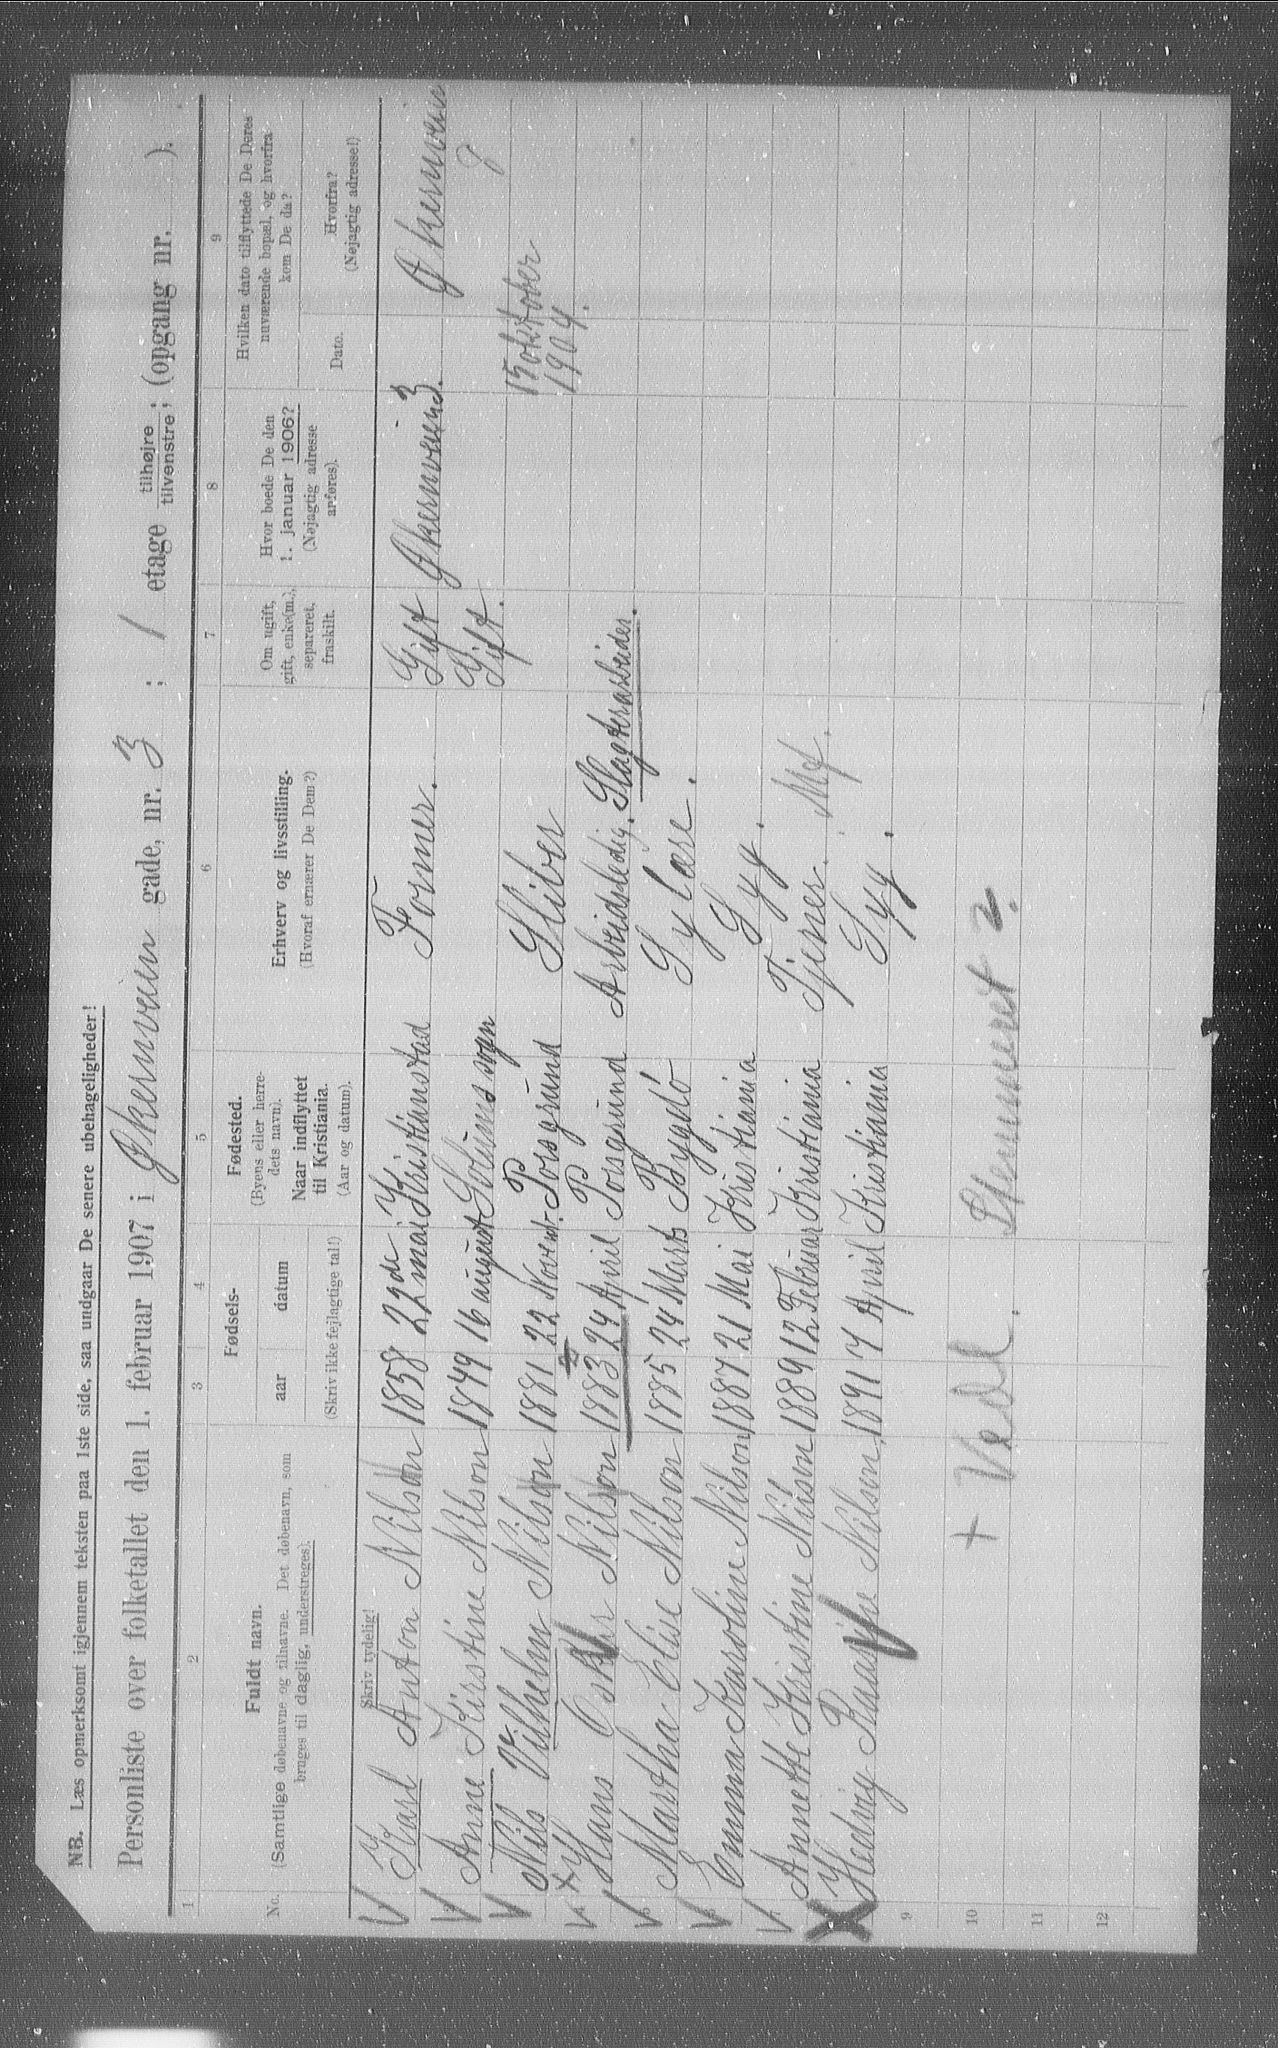 NB. Læs opmerksomt igjennem teksten paa 1ste side, saa undgaar De senere ubehageligheder!
Personliste over folketallet den 1. februar 1907 i Økernveien gade, nr. 3 ; 1 etage tilhøjre tilvenstre; (opgang nr. ).
1 2 3 4 5 6 7 8 9
No. Fuldt navn. (Samtlige døbenavne og tilnavne. Det døbenavn, som bruges til daglig, understreges). Fødsels- aar datum (Skriv ikke fejlagtige tal!) Fødested. (Byens eller herredets navn). Naar indflyttet til Kristiania. (Aar og datum). Erhverv og livsstilling. (Hvoraf ernærer De Dem?) Om ugift, gift, enke(m.), separeret, fraskilt. Hvor boede De den 1. januar 1906? (Nøjagtig adresse anføres). Hvilken dato tilflyttede De Deres nuværende bopæl, og hvorfra kom De da? Dato. Hvorfra? (Nøjagtig adresse!)
Skriv tydelig!
Karl Anton Nilson 1858 22de mai Kristianstad Former. Gift Økernveien 3. Økernveien
Anne Kirstine Nilson 1849 16 august Solums sogn Gift.
Nils Vilhelm Nilson 1881 22 Novem. Porsgrund Sliber 15 oktober 1904.
x Hans Oskar Nilson 1883 24 April Porsgrund Arbeidsledig. Slagterarbeider.
Martha Elise Nilson 1885 24 Marts Bygdö Sylære.
Emma Karoline Nilson 1887 21 Mai Kristiania Syg.
Annette Kristine Nilson 1889 12 Februar Kristiania Tjener.
X Hedvig Nilsen, 1891 7 April Kristiania Syg.
9
10 + Vedl.
11
12